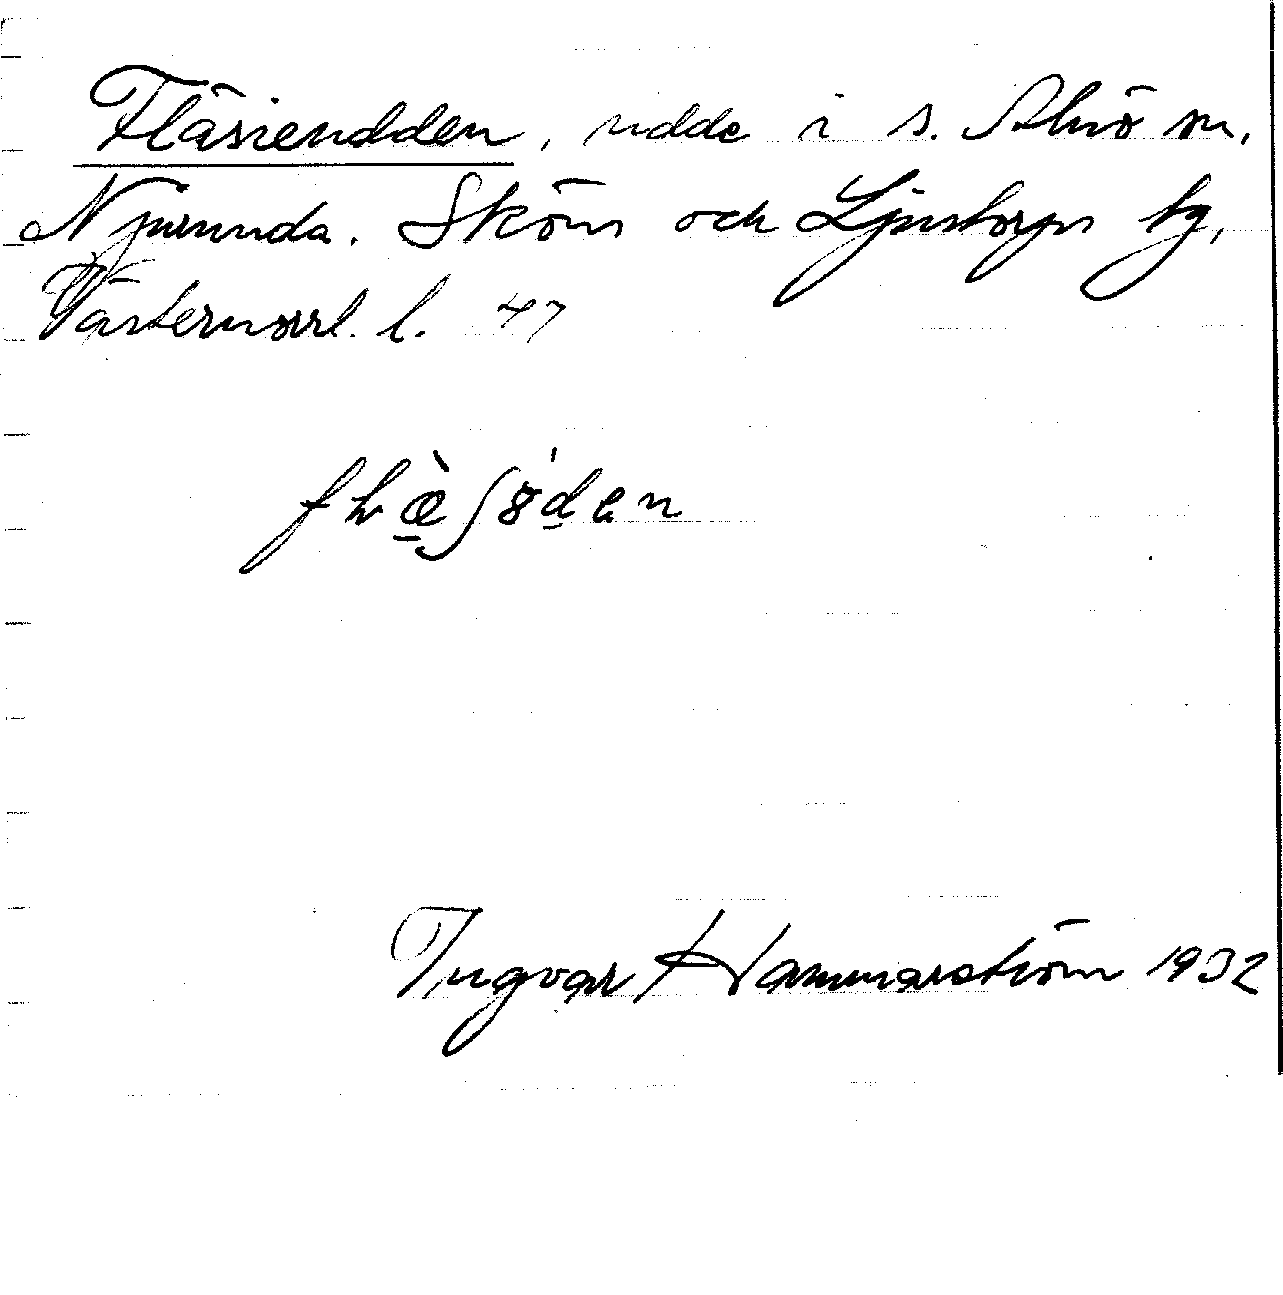 Fläsieudden, udde i s. Alnö sn,
Njurunda. Sköns och Ljustorps tg,
Västernorrl. l. 47
Ingvar Hammarström 1932